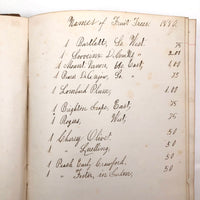 Names of Fruit Trees. 1890.
1 Bartlett, So West. 75
1 Souvenir D 2.00
1 Mount Vernon, East, 1.00
1 So " 75
1 Lombard Plum, 1.00
1 Brighton Grape, East, 75
1 Rogers, West, 75
1 Cherry Olivet 50
1 " 50
1 Peach Early Crawford, 50
1 " Foster, in 50